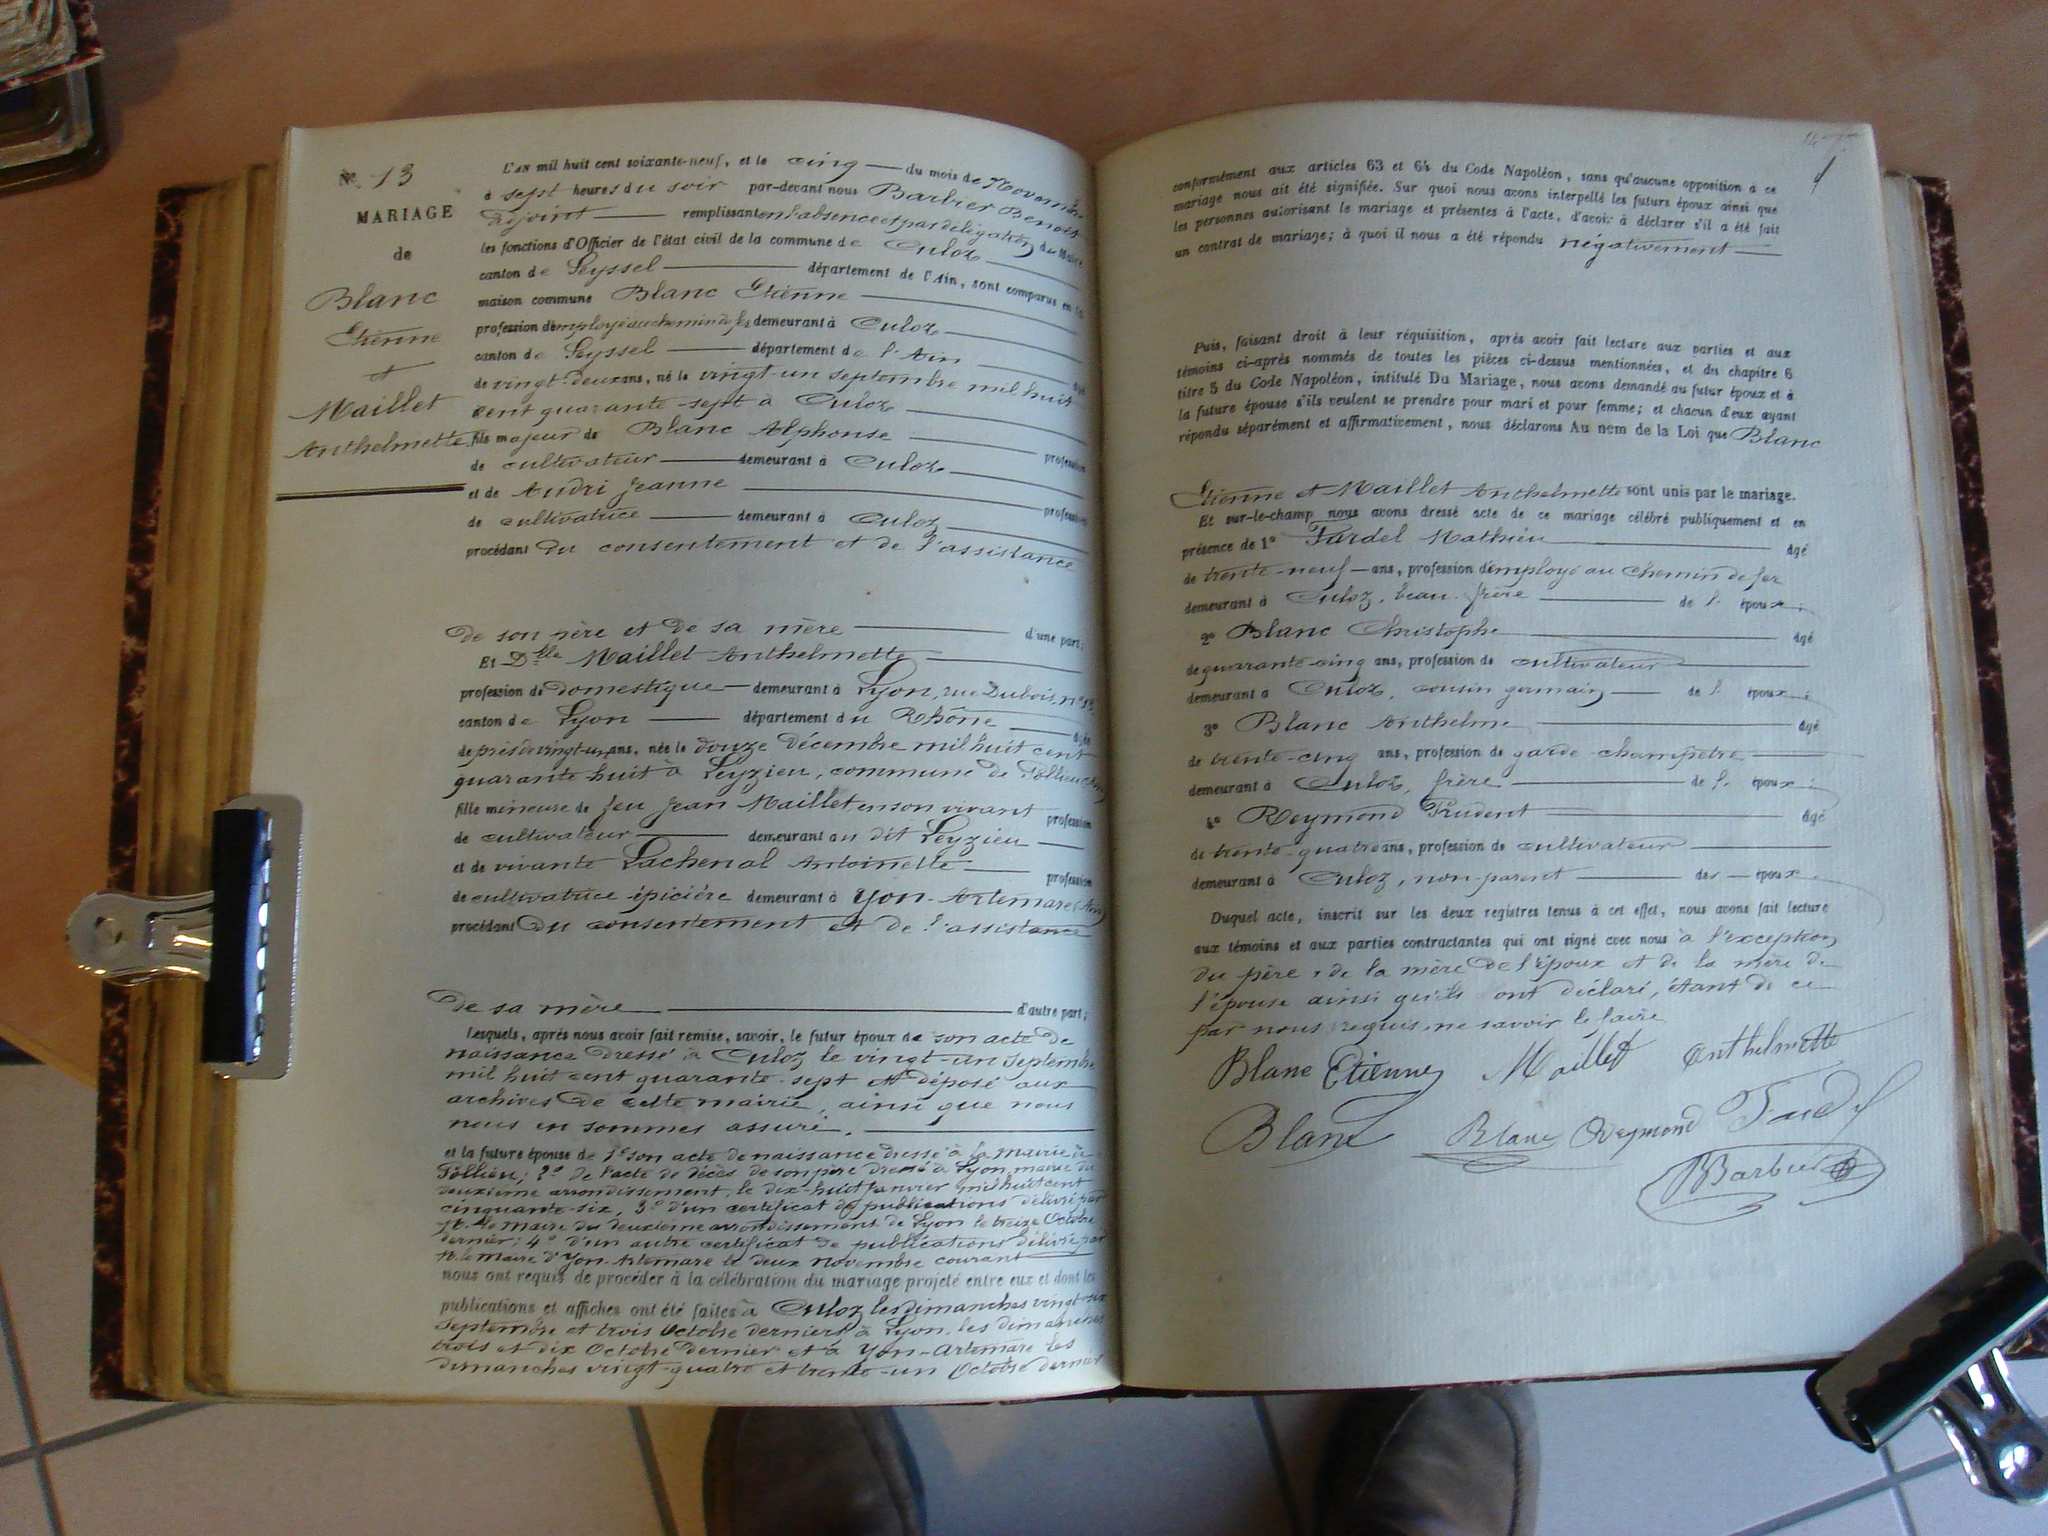 N° 13
MARIAGE
de
Blanc
Etienne
et
Maillet
Anthelmette
L'AN mil huit cent soixante-neuf, et le cinq du mois de Novembre
à sept heures du soir par-devant nous Barbier Benoit
adjoint remplissant en l'absence et par délégation du Maire
les fonctions d'Officier de l'état civil de la commune de Culoz
canton de Seyssel département de l'Ain, sont comparus en la
maison commune Blanc Etienne
profession d'employé au chemin de fer demeurant à Culoz
canton de Seyssel département de l'Ain âgé
de vingt-deux ans, né le vingt-un septembre mil huit
cent quarante-sept à Culoz
fils majeur de Blanc Alphonse profession
de cultivateur demeurant à Culoz
et de Andri Jeanne profession
de cultivatrice demeurant à Culoz
procédant du consentement et de l'assistance
de son père et de sa mère d'une part;
Et Dlle Maillet Anthelmette
profession de domestique demeurant à Lyon, rue Dubois, n° 13
canton de Lyon département du Rhône âgée
de près de vingt-un ans, née le douze décembre mil huit cent
quarante huit à Leyzieu, commune de Pollieu (Ain)
fille mineuse de feu Jean Maillet en son vivant profession
de cultivateur demeurant au dit Leyzieu
et de vivante Lachenal Antoinette profession
de cultivatrice épicière demeurant à Yon-Artemare (Ain)
procédant du consentement et de l'assistance
de sa mère d'autre part;
Lesquels, après nous avoir fait remise, savoir, le futur époux de son acte de
naissance dressé à Culoz le vingt-un Septembre
mil huit cent quarante-sept et déposé aux
archives de cette mairie, ainsi que nous
nous en sommes assuré.
et la future épouse de 1° son acte de naissance dressé à la mairie de
Pollieu; 2° de l'acte de décès de son père dressé à Lyon, mairie du
deuxième arrondissement, le dix-huit Janvier mil huit cent
cinquante-six, 3° d'un certificat de publications délivré par
M. le maire du deuxième arrondissement de Lyon le treize Octobre
dernier; 4° d'un autre certificat de publications délivré par
M. le Maire d'Yon-Artemare le deux novembre courant
nous ont requis de procéder à la célébration du mariage projeté entre eux et dont les
publications et affiches ont été faites à Culoz les dimanches vingt-six
Septembre et trois Octobre derniers à Lyon, les dimanches
trois et dix Octobre dernier et à Yon-Artemare les
dimanches vingt-quatre et trente-un Octobre dernier
conformément aux articles 63 et 64 du Code Napoléon, sans qu'aucune opposition à ce
mariage nous ait été signifiée. Sur quoi nous avons interpellé les futurs époux ainsi que
les personnes autorisant le mariage et présentes à l'acte, d'avoir à déclarer s'il a été fait
un contrat de mariage; à quoi il nous a été répondu négativement
Puis, faisant droit à leur réquisition, après avoir fait lecture aux parties et aux
témoins ci-après nommés de toutes les pièces ci-dessus mentionnées, et du chapitre 6
titre 5 du Code Napoléon, intitulé Du Mariage, nous avons demandé au futur époux et à
la future épouse s'ils veulent se prendre pour mari et pour femme; et chacun d'eux ayant
répondu séparément et affirmativement, nous déclarons Au nom de la Loi que Blanc
Etienne et Maillet Anthelmette sont unis par le mariage.
Et sur-le-champ nous avons dressé acte de ce mariage célébré publiquement et en
présence de 1° Fardel Mathieu âgé
de trente-neuf ans, profession d'employé au chemin de fer
demeurant à Culoz, beau-frère de l' époux;
2° Blanc Christophe âgé
de quarante-cinq ans, profession de cultivateur
demeurant à Culoz, cousin germain de l' époux;
3° Blanc Anthelme âgé
de trente-cinq ans, profession de garde-champetre
demeurant à Culoz, frère de l' époux;
4° Reymond Prudent âgé
de trente-quatre ans, profession de cultivateur
demeurant à Culoz, non-parent des époux.
Duquel acte, inscrit sur les deux registres tenus à cet effet, nous avons fait lecture
aux témoins et aux parties contractantes qui ont signé avec nous à l'exception
du père, de la mère de l'époux et de la mère de
l'épouse ainsi qu'ils ont déclaré, étant de ce
par nous requis, ne savoir le faire
Blanc Etienne Maillet Anthelmette
Blanc Blanc Reymond Fardel
Barbier